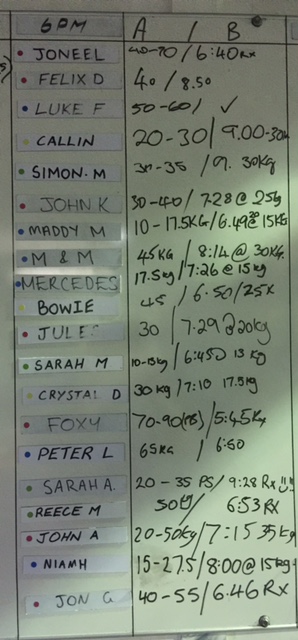 6PM A / B
JONEEL 40-70 / 6:40 Rx
FELIX D 40 / 8.50
LUKE F 50-60 / ✓
CALLIN 20-30 / 9.00-30kg
SIMON. M 30-35 / 9. 30kg
JOHN K 30-40 / 7:28 @ 25kg
MADDY M 10-17.5KG / 6.49 @ 15KG
M & M 45KG / 8:14 @ 30KG.
MERCEDES 17.5kg / 7:26 @ 15kg
BOWIE 45 / 6.50 / 25X
JULES 30 / 7.29 @ 20kg
SARAH M 10-15kg / 6:45 @ 13 kg
CRYSTAL D 30 kg / 7:10 17.5kg
FOXY 70-90(PS) / 5:45Rx
PETER L 65KG / 6:50
SARAH A. 20-35 PS / 9:28 Rx
REECE M 50 / 6:53 RX
JOHN A 20-50kg / 7:15 35kg
NIAMH 15-27.5 / 8:00 @ 15kg
JON G 40-55 / 6.46 Rx